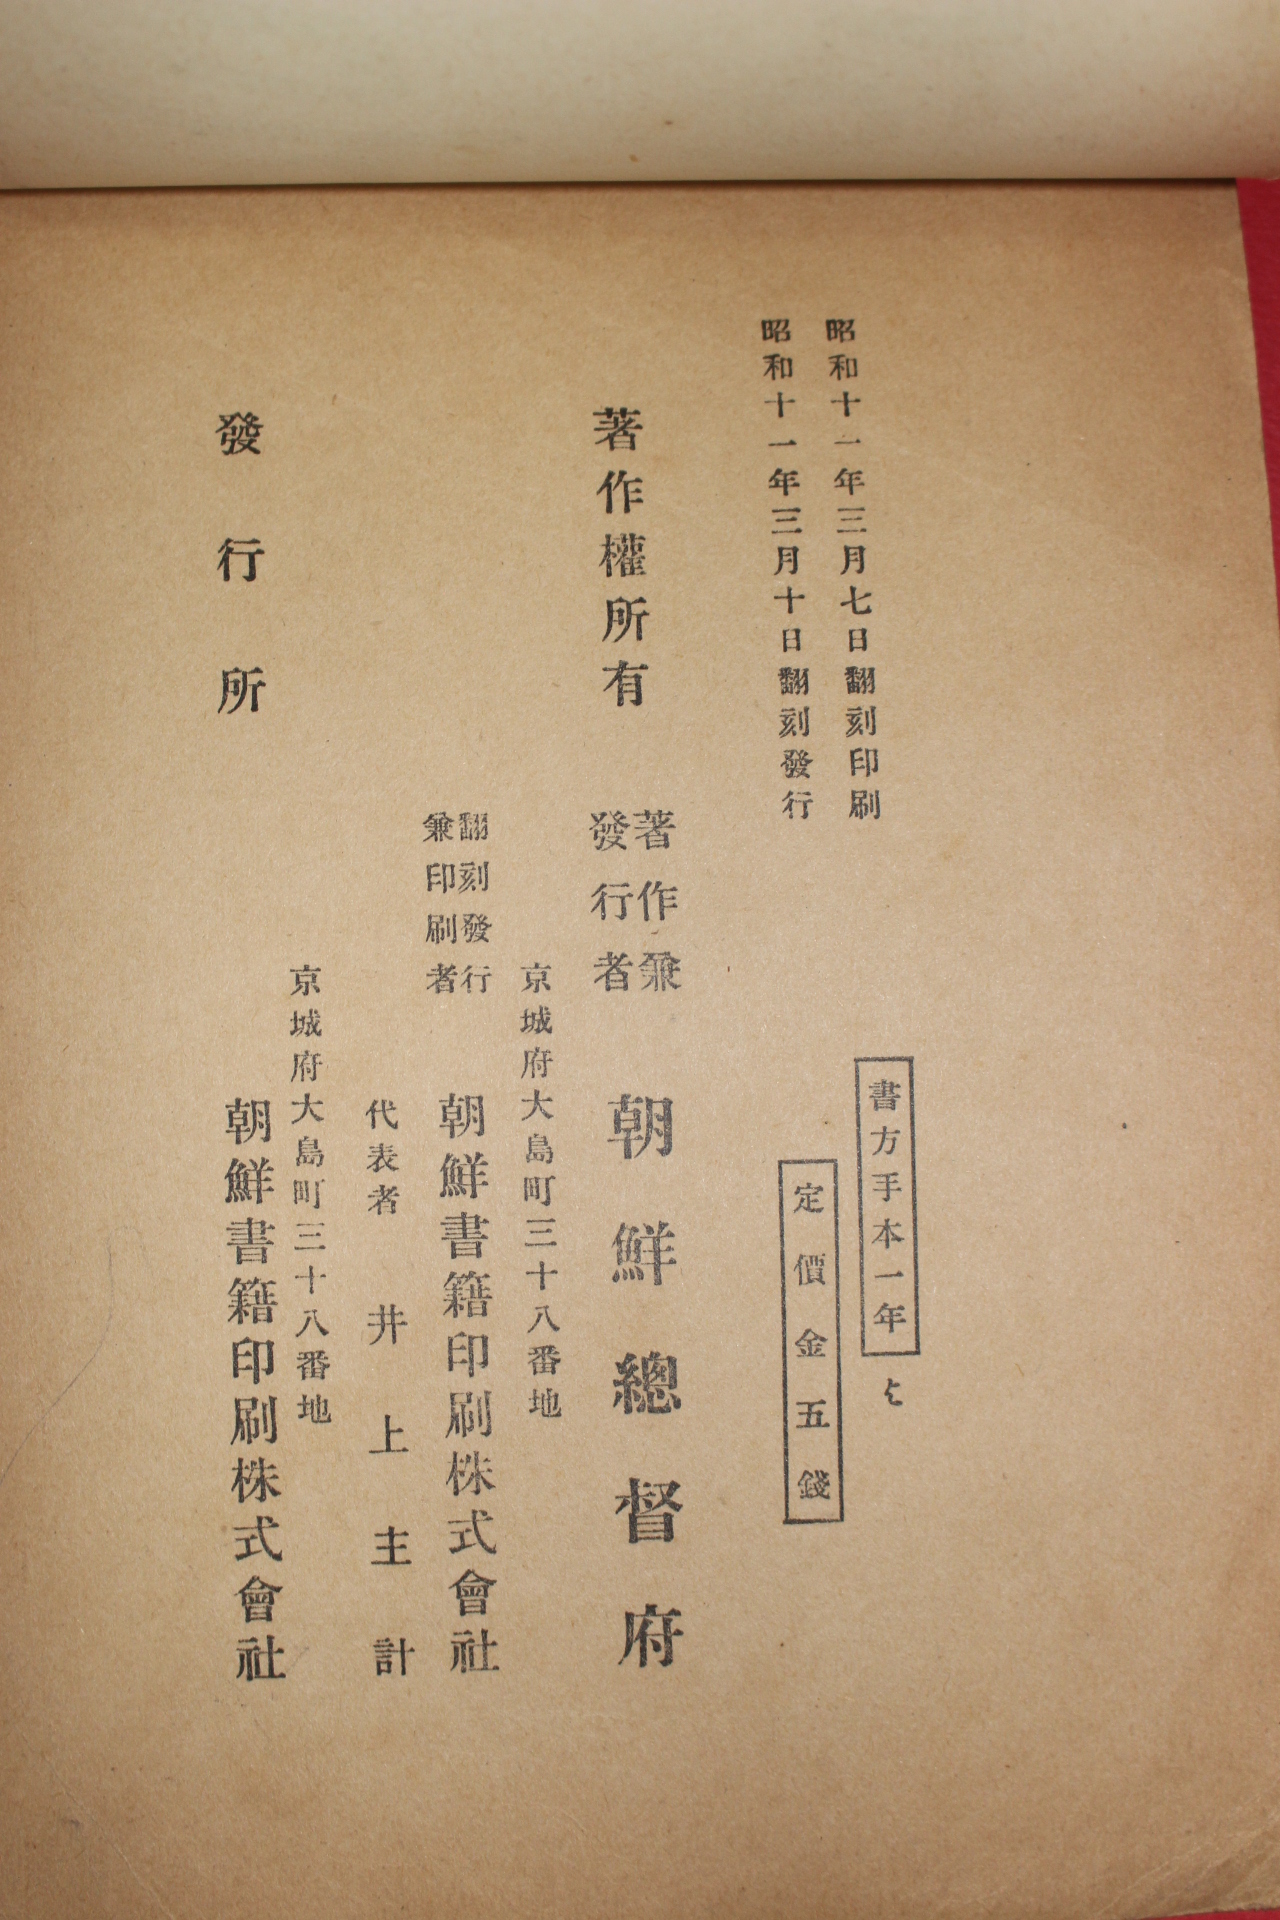 昭和十一年三月七日翻刻印刷
昭和十一年三月十日翻刻發行
書方手本一年
と
定價金五錢
著作權所有
著作兼
發行者
朝鮮總督府
京城府大島町三十八番地
翻刻發行
兼印刷者
朝鮮書籍印刷株式會社
代表者 井上主計
京城府大島町三十八番地
發行所
朝鮮書籍印刷株式會社